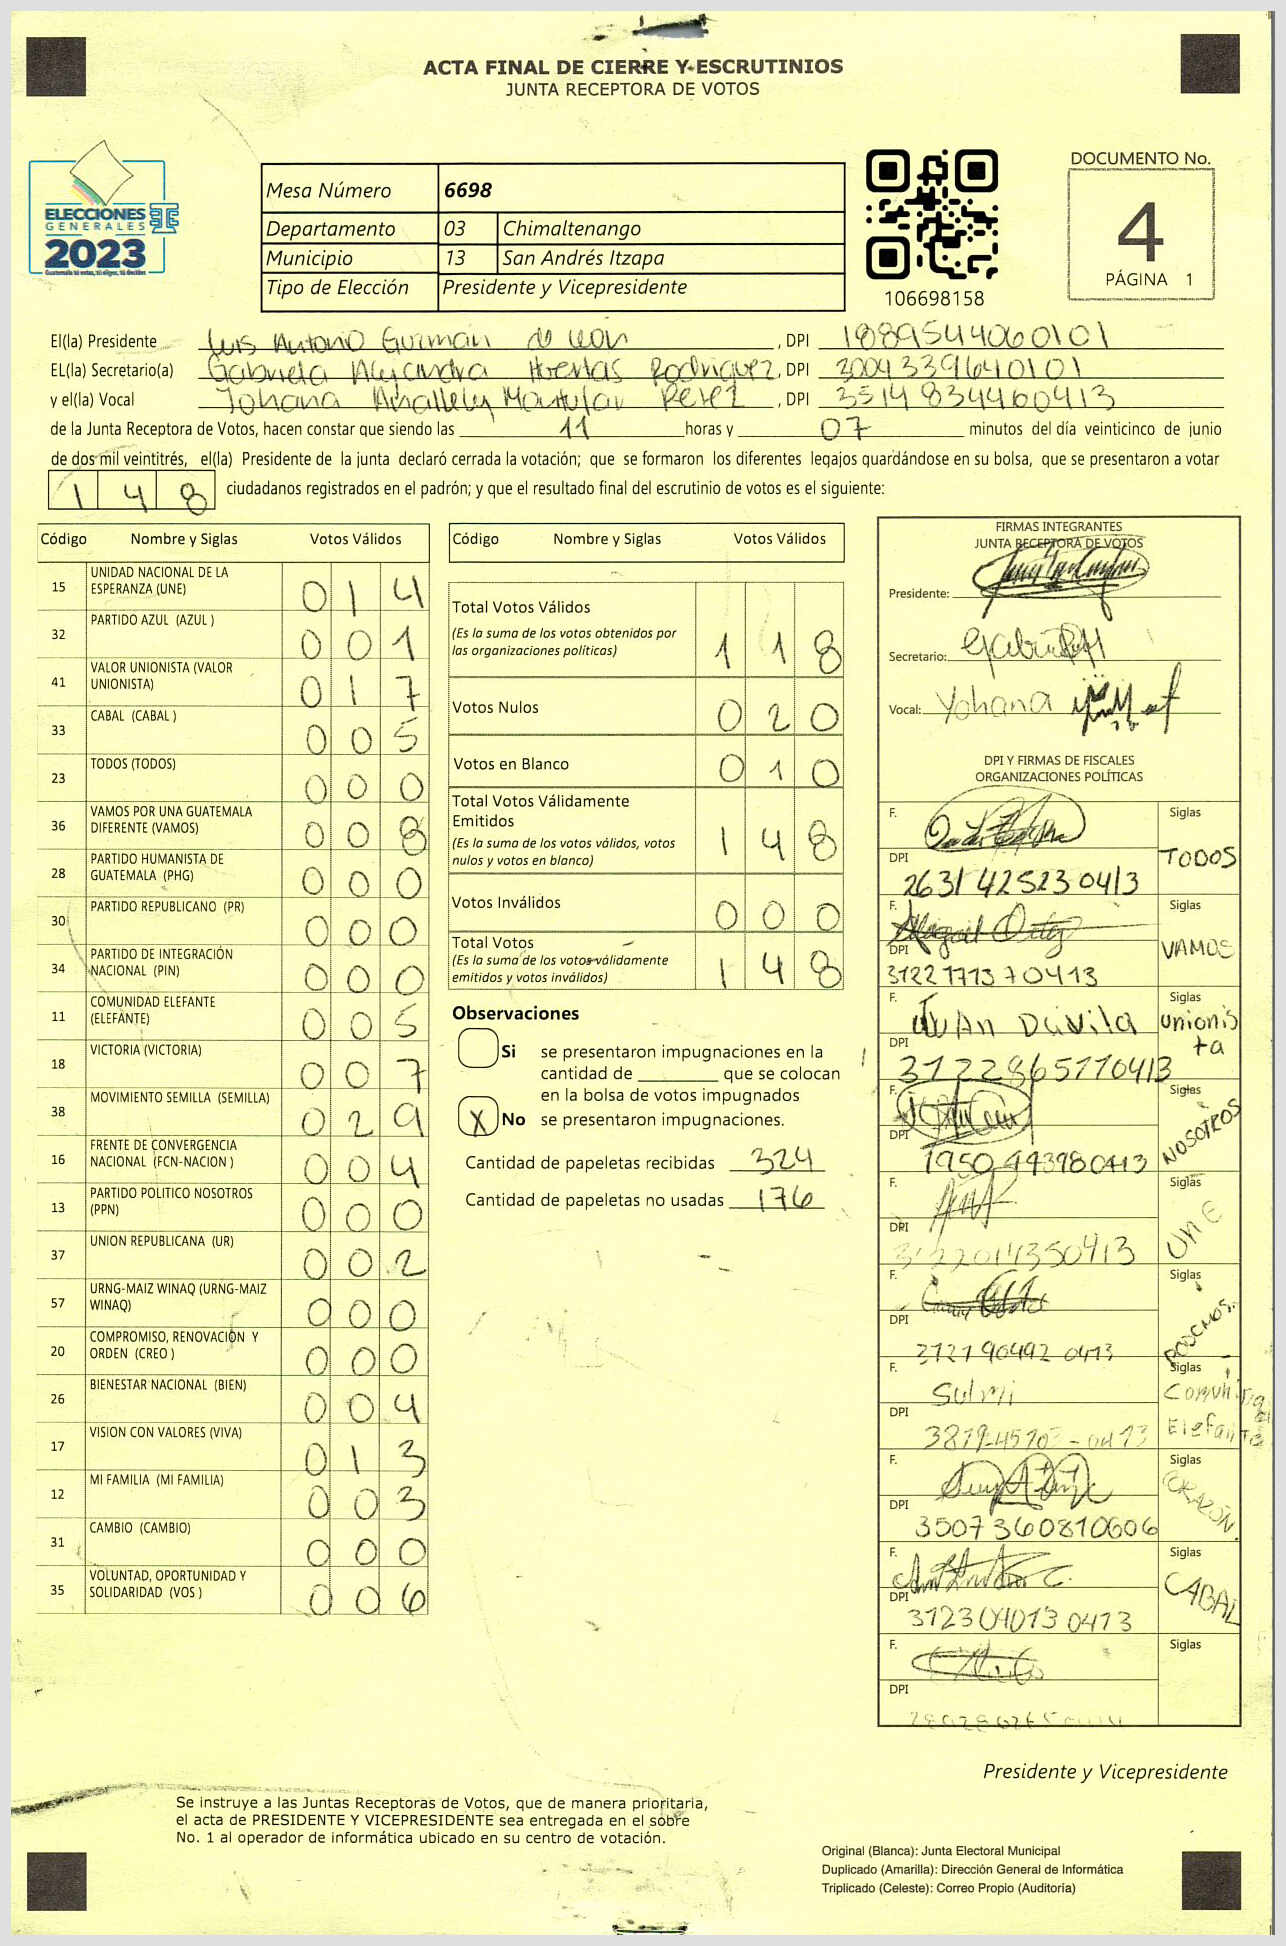 ACTA FINAL DE CIERRE Y ESCRUTINIOS
JUNTA RECEPTORA DE VOTOS
ELECCIONES
GENERALES
2023
Mesa Número 6698
Departamento 03 Chimaltenango
Municipio 13 San Andrés Itzapa
Tipo de Elección Presidente y Vicepresidente
106698158
DOCUMENTO No.
4
PÁGINA 1
El(la) Presidente Luis Antonio Guzmán de León, DPI 1889544060101
EL(la) Secretario(a) Gabriela Alejandra Huertas Rodriguez, DPI 3004339640101
y el(la) Vocal Yohana Montufar Perez, DPI 3514834460413
de la Junta Receptora de Votos, hacen constar que siendo las 11 horas y 07 minutos del día veinticinco de junio
de dos mil veintitrés, el(la) Presidente de la junta declaró cerrada la votación; que se formaron los diferentes legajos guardándose en su bolsa, que se presentaron a votar
148 ciudadanos registrados en el padrón; y que el resultado final del escrutinio de votos es el siguiente:
Código Nombre y Siglas Votos Válidos
15 UNIDAD NACIONAL DE LA ESPERANZA (UNE) 014
32 PARTIDO AZUL (AZUL ) 001
41 VALOR UNIONISTA (VALOR UNIONISTA) 017
33 CABAL (CABAL ) 005
23 TODOS (TODOS) 000
36 VAMOS POR UNA GUATEMALA DIFERENTE (VAMOS) 008
28 PARTIDO HUMANISTA DE GUATEMALA (PHG) 000
30 PARTIDO REPUBLICANO (PR) 000
34 PARTIDO DE INTEGRACIÓN NACIONAL (PIN) 000
11 COMUNIDAD ELEFANTE (ELEFANTE) 005
18 VICTORIA (VICTORIA) 007
38 MOVIMIENTO SEMILLA (SEMILLA) 029
16 FRENTE DE CONVERGENCIA NACIONAL (FCN-NACION ) 004
13 PARTIDO POLITICO NOSOTROS (PPN) 000
37 UNION REPUBLICANA (UR) 002
57 URNG-MAIZ WINAQ (URNG-MAIZ WINAQ) 000
20 COMPROMISO, RENOVACIÓN Y ORDEN (CREO ) 000
26 BIENESTAR NACIONAL (BIEN) 004
17 VISION CON VALORES (VIVA) 013
12 MI FAMILIA (MI FAMILIA) 003
31 CAMBIO (CAMBIO) 000
35 VOLUNTAD, OPORTUNIDAD Y SOLIDARIDAD (VOS ) 006
Código Nombre y Siglas Votos Válidos
Total Votos Válidos 118
(Es la suma de los votos obtenidos por las organizaciones políticas)
Votos Nulos 020
Votos en Blanco 010
Total Votos Válidamente Emitidos 148
(Es la suma de los votos válidos, votos nulos y votos en blanco)
Votos Inválidos 000
Total Votos 148
(Es la suma de los votos válidamente emitidos y votos inválidos)
Observaciones
Si se presentaron impugnaciones en la
cantidad de ________ que se colocan
en la bolsa de votos impugnados
X No se presentaron impugnaciones.
Cantidad de papeletas recibidas 324
Cantidad de papeletas no usadas 176
FIRMAS INTEGRANTES
JUNTA RECEPTORA DE VOTOS
Presidente:
Secretario:
Vocal: Yohana
DPI Y FIRMAS DE FISCALES
ORGANIZACIONES POLÍTICAS
F. Siglas
TODOS
DPI 2631 42523 0413
F. Siglas
VAMOS
DPI 3122177370413
F. Juan Davila Siglas
unionista
DPI 3122865770413
F. Siglas
NOSOTROS
DPI 1950443980413
F. Siglas
UNE
DPI 3122014350413
F. Siglas
PODEMOS.
DPI 3121904920413
F. Sulmi Siglas
Elefante
DPI
F. Siglas
CORAZÓN.
DPI 3507360810606
F. Siglas
CABAL
DPI 3123040130413
F. Siglas
DPI
Presidente y Vicepresidente
Se instruye a las Juntas Receptoras de Votos, que de manera prioritaria,
el acta de PRESIDENTE Y VICEPRESIDENTE sea entregada en el sobre
No. 1 al operador de informática ubicado en su centro de votación.
Original (Blanca): Junta Electoral Municipal
Duplicado (Amarilla): Dirección General de Informática
Triplicado (Celeste): Correo Propio (Auditoría)